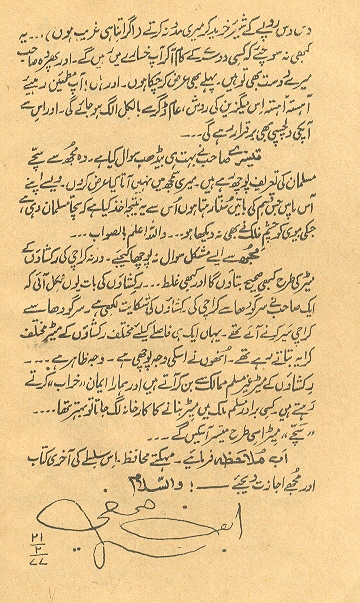 دس دس روپے کے شیئر خرید کر میری مدد نہ کرتے (اگر اتنا ہی غریب ہوں)... یہ
کبھی نہ سوچئے کہ کسی دوسرے کے کام آکر آپ خسارے میں رہیں گے۔ اور پھر وہ صاحب
میرے دوست بھی تو ہیں۔ پہلے بھی عرض کر چکا ہوں۔ اور ہاں! آپ مطمئن رہیئے
آہستہ آہستہ اس میگزین کی روش، عام ڈگر سے بالکل الگ ہو جائے گی۔ اور اس سے
آپکی دلچسپی بھی برقرار رہے گی...
تیسرے صاحب نے بہت ہی بیڈھب سوال کیا ہے۔ وہ مجھ سے سچے
مسلمان کی تعریف پوچھ رہے ہیں۔ میری سمجھ میں نہیں آتا کیا عرض کروں۔ ویسے اپنے
آس پاس جس قسم کی باتیں سنتا رہتا ہوں اُس سے یہ نتیجہ اخذ کیا ہے کہ سچا مسلمان وہی ہے
جسکی بیوی کو چشمِ فلک نے بھی نہ دیکھا ہو۔۔ واللہ اعلم بالصواب۔۔۔
مجھ سے ایسے مشکل سوال نہ پوچھا کیجئے۔ ورنہ کراچی کی رکشاؤں کے
میٹر کی طرح کبھی صحیح بتاؤں گا اور کبھی غلط... رکشاؤں کی بات یوں نکل آئی کہ
ایک صاحب نے سرگودھا سے کراچی کی رکشاؤں کی شکایت لکھی ہے۔ سرگودھا سے
کراچی سیر کرنے آئے تھے۔ یہاں ایک ہی فاصلے کیلئے مختلف رکشاؤں کے میٹر مختلف
کرایہ بتاتے رہے تھے۔ انھوں نے اسکی وجہ پوچھی ہے۔ وجہ ظاہر ہے....
رکشاؤں کے میٹر غیر مسلم ممالک سے بن کر آتے ہیں اور ہمارا ایمان "خراب" کرتے
رہتے ہیں۔ کسی برادر مسلم ملک میں میٹر بنانے کا کارخانہ لگ جاتا تو بہتر تھا....
"سچے" میٹر اسی طرح میسر آسکیں گے۔۔۔
اب ملاحظہ فرمائیے۔ مہکتے محافظ۔ اس سلسلے کی آخری کتاب
اور مجھے اجازت دیجئے ——! والسلام
ابن صفی
۲۱
۲
۷۷